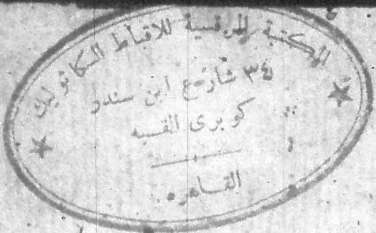 المكتبة المرقسية للاقباط الكاثوليك
٣٤ شارع ابن سندر
كوبرى القبه
القاهره